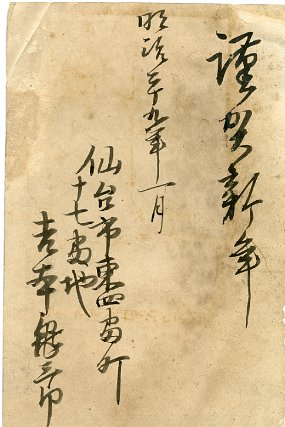 謹賀新年
明治三十九年一月
仙台市東四番町
十七番地
吉本